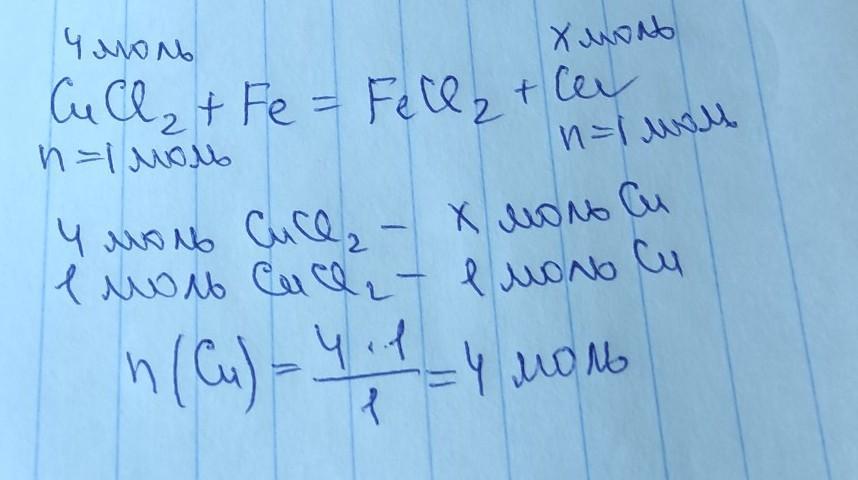 4 моль x моль
CuCl₂ + Fe = FeCl₂ + Cu
n = 1 моль n = 1 моль
4 моль CuCl₂ – x моль Cu
1 моль CuCl₂ – 1 моль Cu
n(Cu) = 4·1/1 = 4 моль